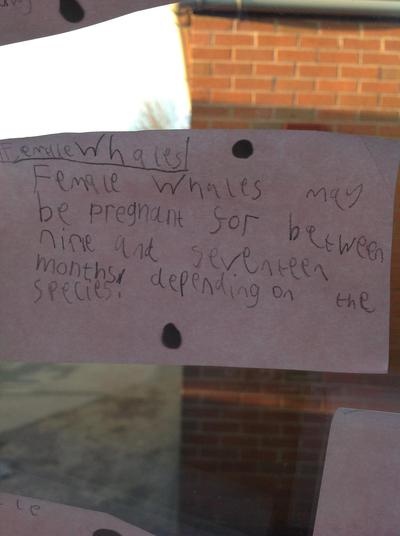 Female Whales
Female Whales may
be pregnant for between
nine and seventeen
months, depending on the
species.